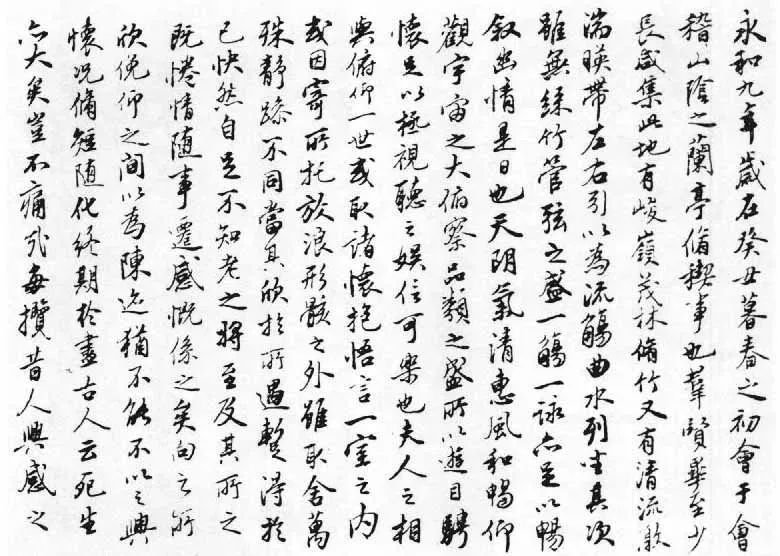 永和九年歲在癸丑暮春之初會于會
稽山陰之蘭亭脩稧事也羣賢畢至少
長咸集此地有峻嶺茂林脩竹又有清流激
湍暎帶左右引以為流觴曲水列坐其次
雖無絲竹管弦之盛一觴一詠亦足以暢
叙幽情是日也天朗氣清惠風和暢仰
觀宇宙之大俯察品類之盛所以遊目騁
懷足以極視聽之娛信可樂也夫人之相
與俯仰一世或取諸懷抱悟言一室之内
或因寄所托放浪形骸之外雖取舍萬
殊静躁不同當其欣於所遇蹔得於
己快然自足不知老之將至及其所之
既惓情隨事遷感慨係之矣向之所
欣俛仰之間以為陳迹猶不能不以之興
懷況脩短隨化終期於盡古人云死生
亦大矣豈不痛哉每攬昔人興感之